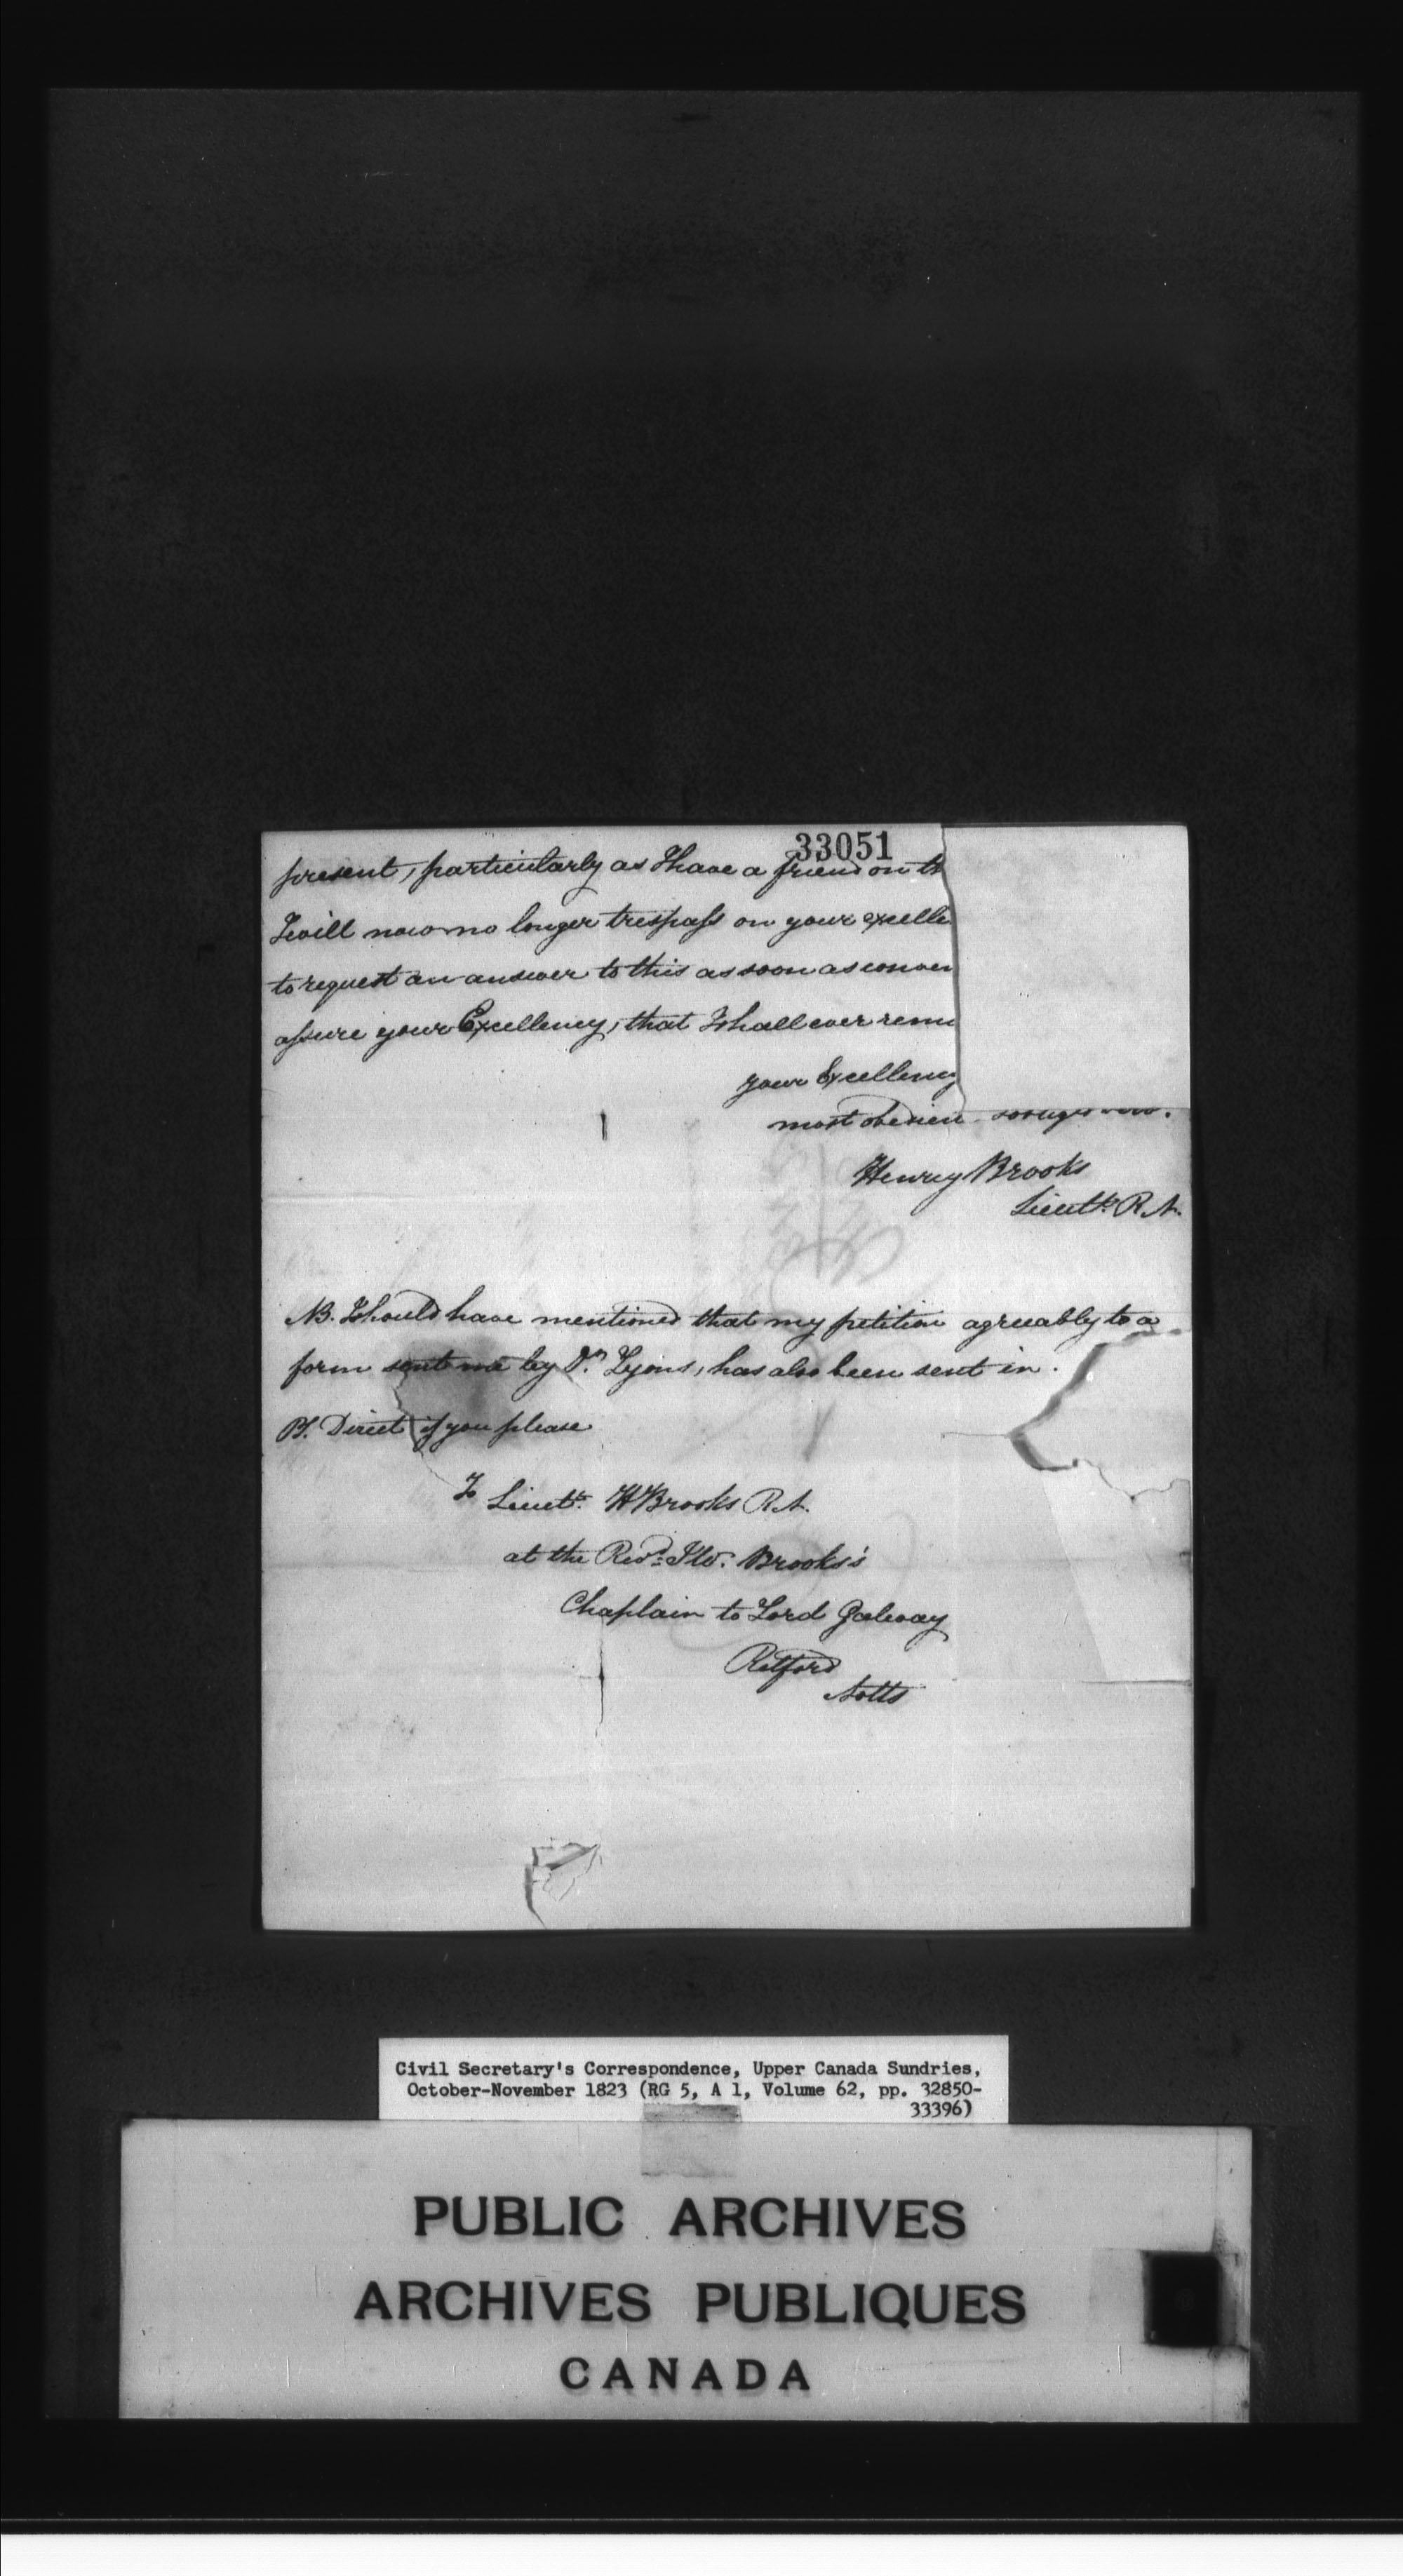 33051
present, particularly as I have a friend on th
I will now no longer trespass on your excelle
to request an answer to this as soon as conven
assure your Excellency, that I shall ever rem
your Excellency
most obedien
Henry Brooks
Lieutt. R.N.
NB. I should have mentioned that my petition agreeably to a
form sent me by Lyons, has also been sent in.
PS. Direct if you please
To Lieutt. H Brooks R.N.
at the Revd. Brooks's
Chaplain to Lord Galway
Retford
Notts
Civil Secretary's Correspondence, Upper Canada Sundries,
October-November 1823 (RG 5, A 1, Volume 62, pp. 32850-
33396)
PUBLIC ARCHIVES
ARCHIVES PUBLIQUES
CANADA